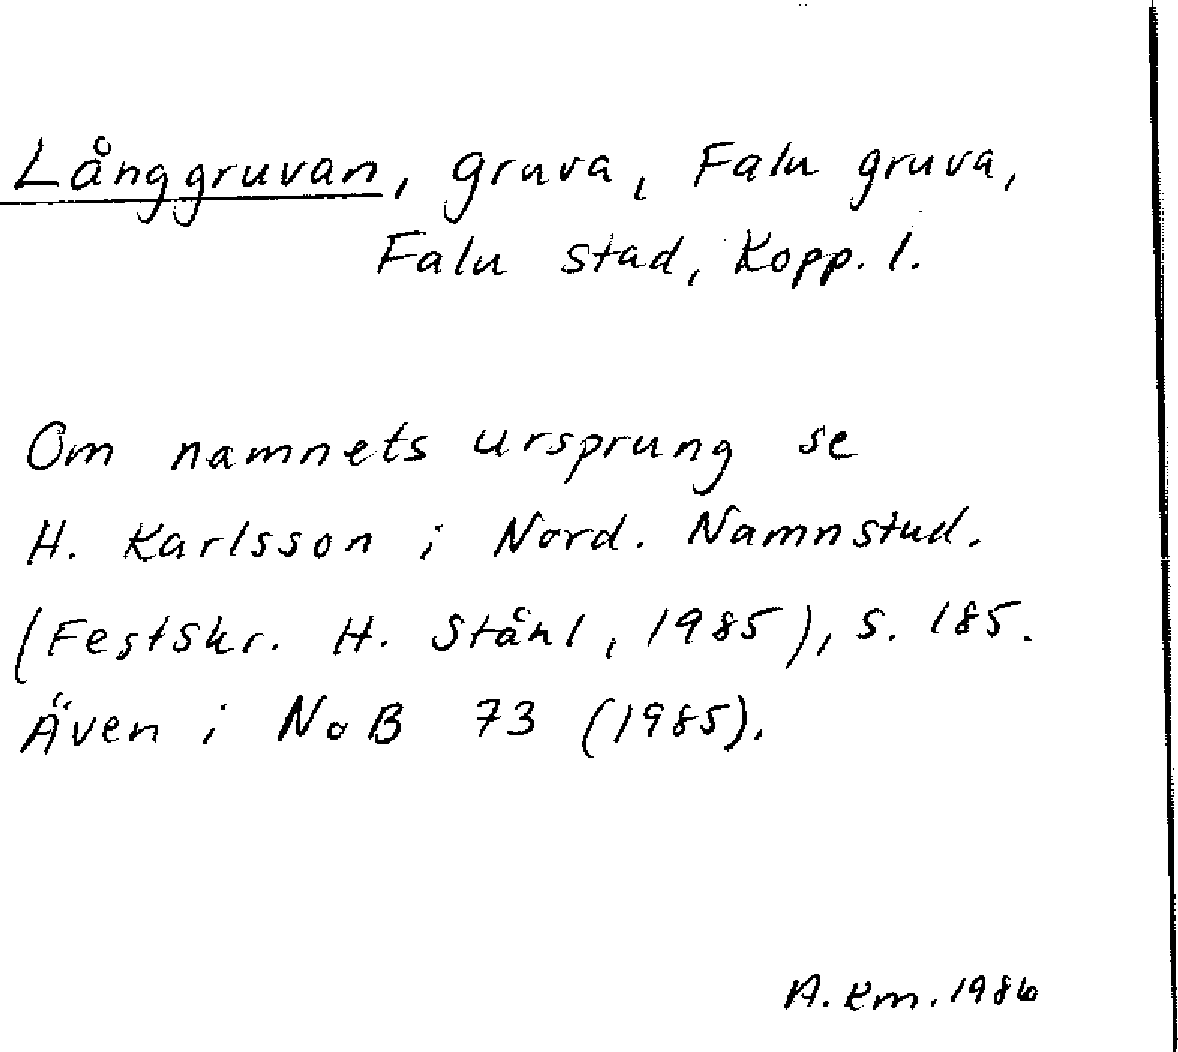 Långgruvan, gruva, Falu gruva,
Falu stad, Kopp. l.
Om namnets ursprung se
H. Karlsson i Nord. Namnstud.
(Festskr. H. Ståhl, 1985), s. 185.
Även i NoB 73 (1985).
A. Km. 1986